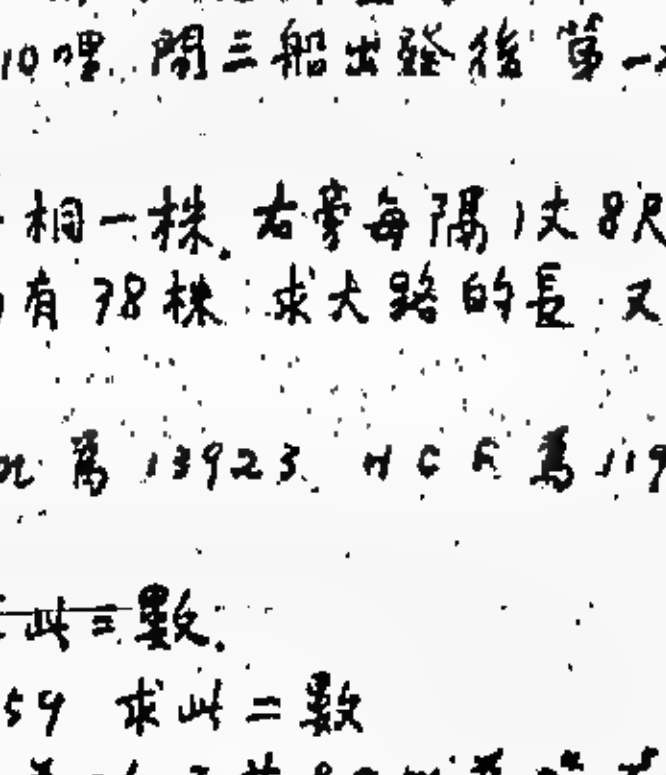 10哩.問三船出發後第一
相一株.右旁每隔1丈8尺
有38株.求大路的長.又
為13923. H C F 為119
此二數.
59 求此二數